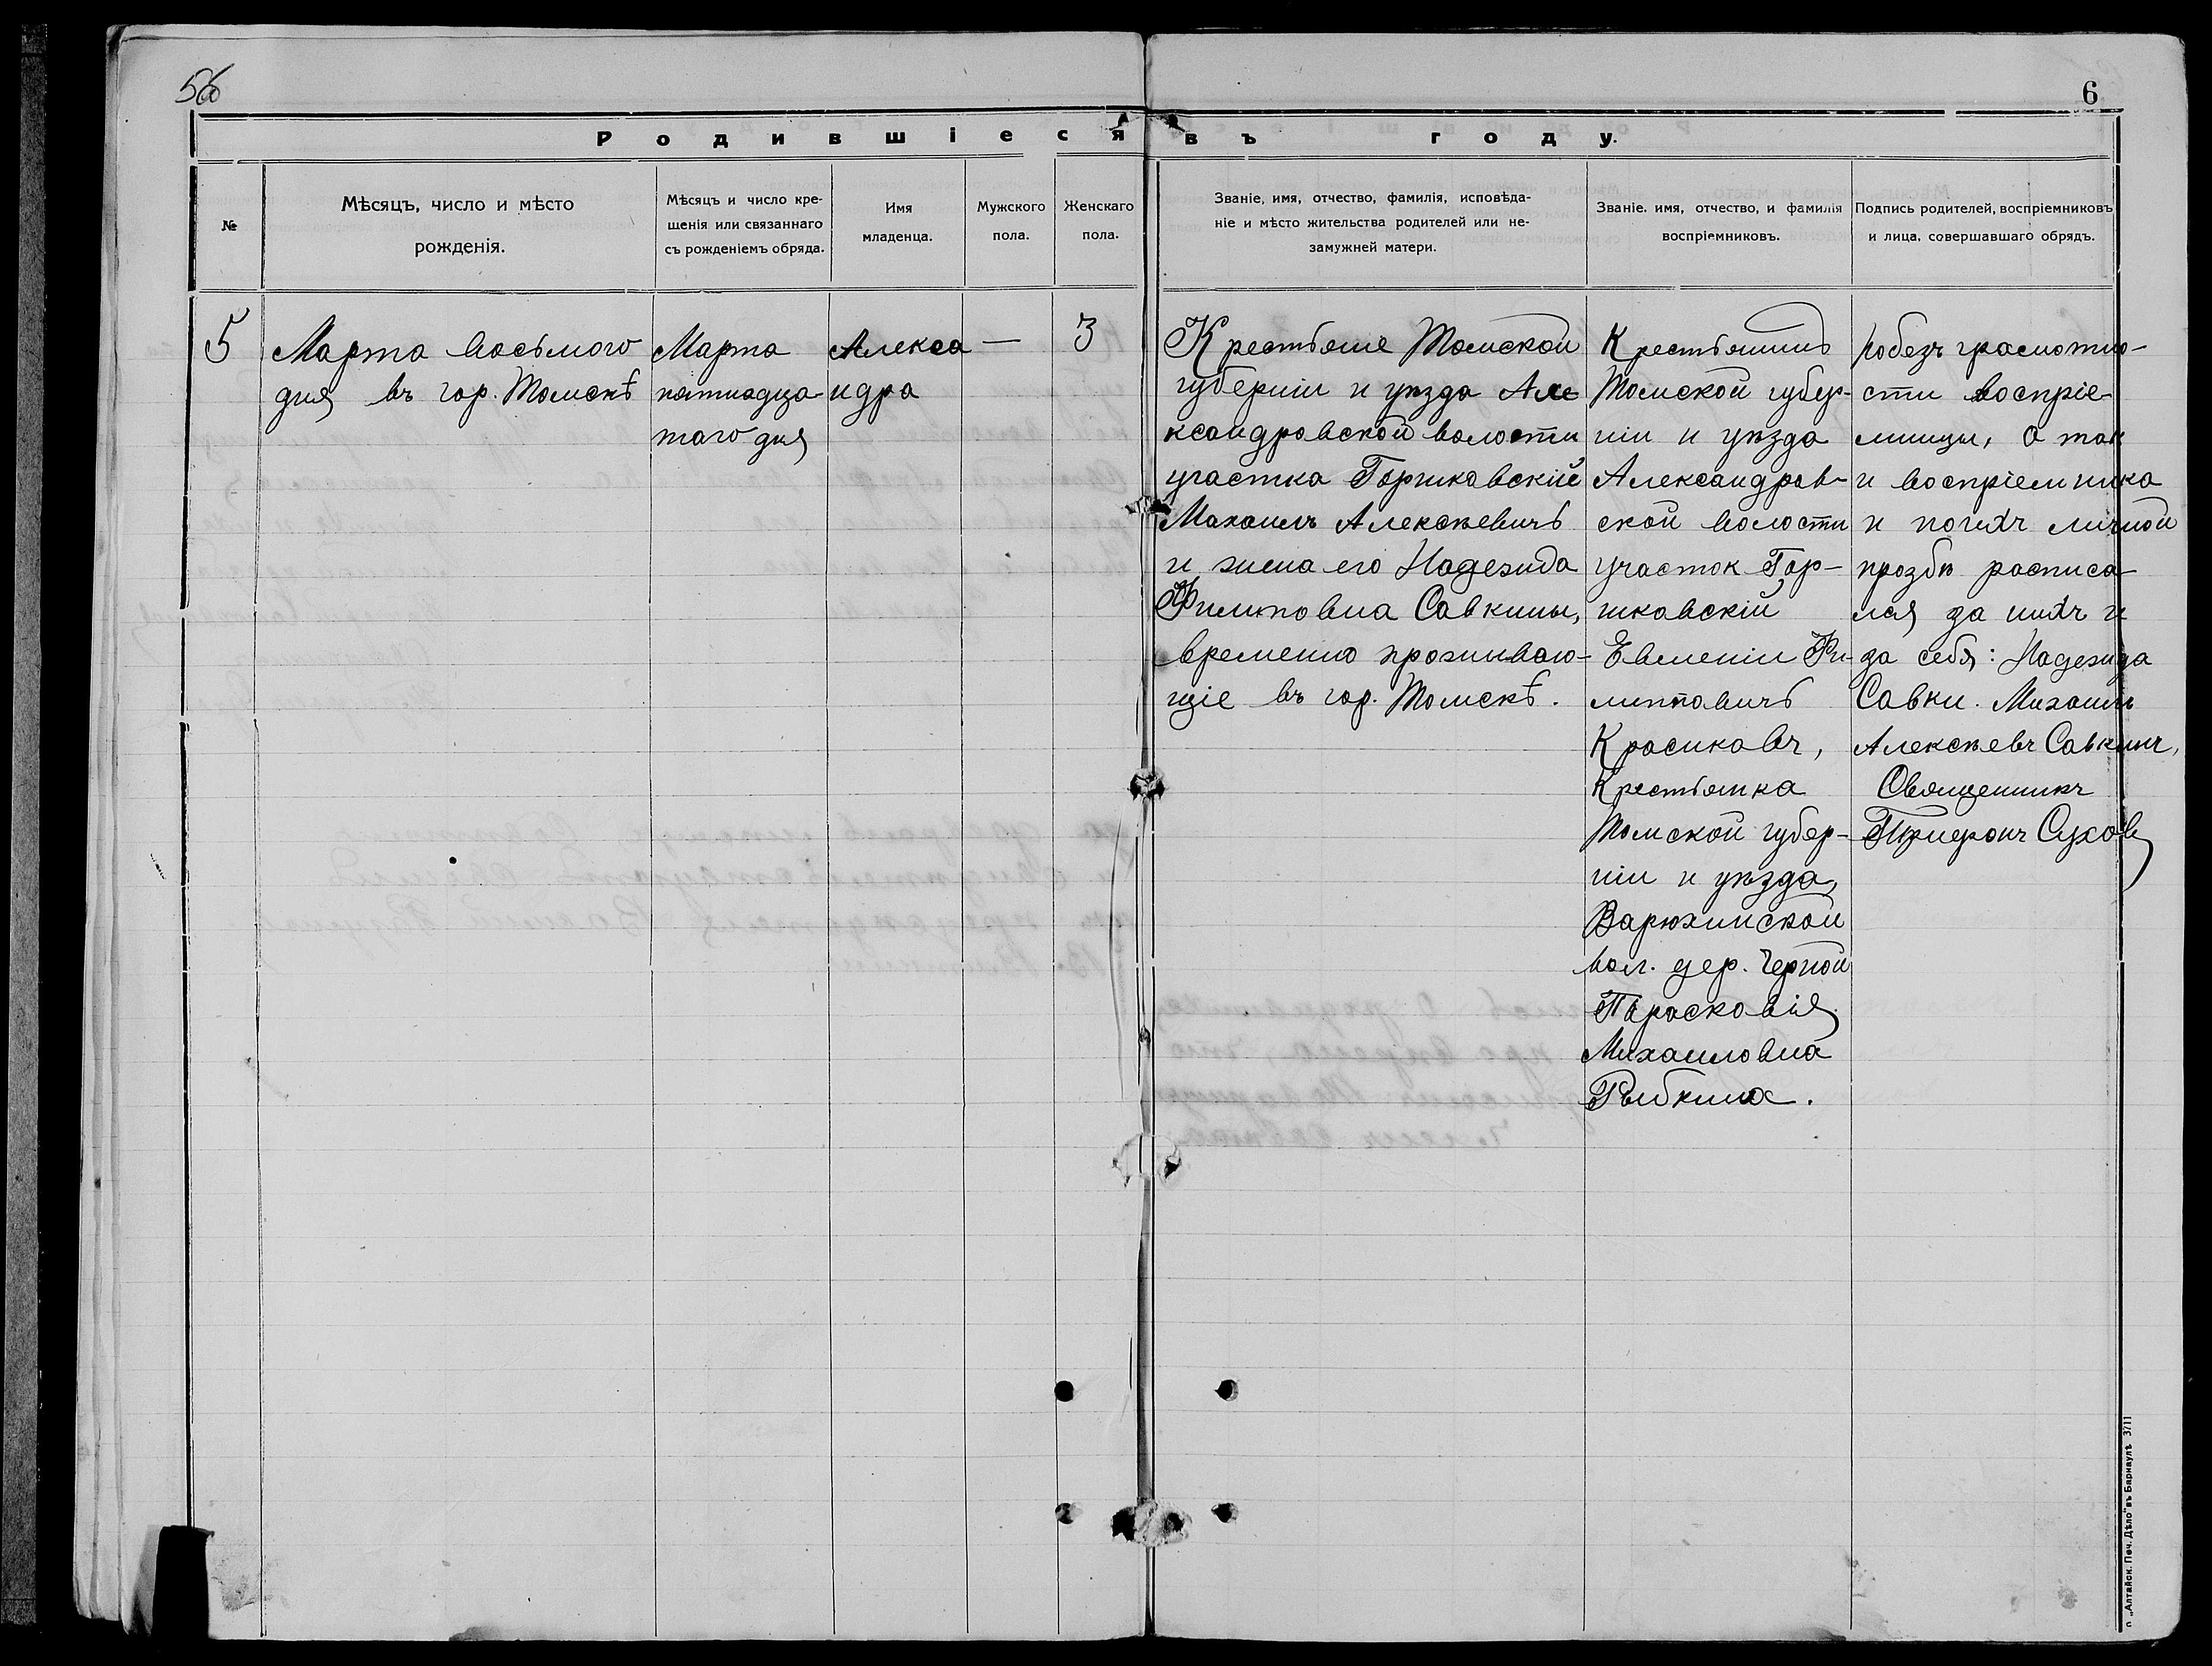 56
6
Родившіеся въ году.
№
Мѣсяцъ, число и мѣсто
рожденія.
Мѣсяцъ и число кре-
щенія или связаннаго
съ рожденіемъ обряда.
Имя
младенца.
Мужского
пола.
Женскаго
пола.
Званіе, имя, отчество, фамилія, исповѣда-
ніе и мѣсто жительства родителей или не-
замужней матери.
Званіе. имя, отчество, и фамилія
воспріемниковъ.
Подпись родителей, воспріемниковъ
и лица, совершавшаго обрядъ.
5
Марта восьмого
дня въ гор. Томскѣ
Марта
пятнадца-
таго дня
Алекса
ндра
—
3
Крестьяне Томской
губерніи и уѣзда Але
ксандровской волости
участка Горшковскій
Михаилъ Алексѣевичъ
и жена его Надежда
Филиповна Савкины,
временно проживаю-
щіе въ гор. Томскѣ.
Крестьянинъ
Томской губер-
ніи и уѣзда
Александров-
ской волости
участок Гор-
шковскій
Евменій Фи-
липповичъ
Красиковъ,
Крестьянка
Томской губер-
ніи и уѣзда,
Варюхинской
вол. дер. Черной
Парасковія
Михаиловна
Рыбкина.
грамотно-
сти воспріе-
мницы, а так
и воспріемника
и по ихъ личной
прозбѣ росписа-
лся за нихъ и
за себя: Надежда
Савки. Михаилъ
Алексѣевъ Савкинъ,
Священникъ
Сухов
О. „Алтайск. Печ. Дѣло" въ Барнаулѣ 3711